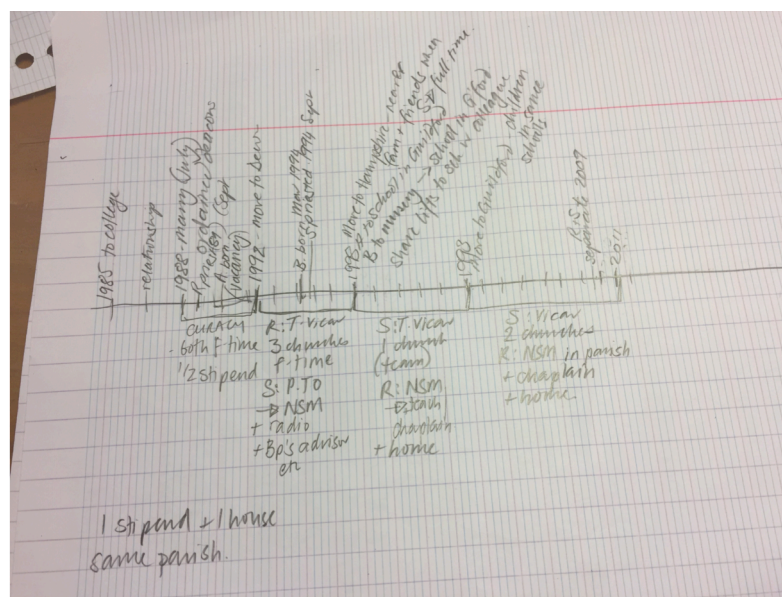 1985 to college
relationship
1988 - marry (July)
ordained deacons
A born (Sept
vacancy)
1992 - move to
B. born Nov 1994
S priested 1994 Sept
Move to Hampshire - nearer
fam + friends when
S → full time.
to School in Guildford
B to nursery → School in G'ford
Share lifts to Sch w colleague
Move to Guildford children
in same
schools
R + S
separate 2009
2011
CURACY
- both f time
1/2 stipend
R: T. Vicar
3 churches
f-time
S: P.TO
→ NSM
+ radio
+ Bp's advisor
etc
S: T. Vicar
1 church
(team)
R: NSM
→ teach
chaplain
+ home
S: Vicar
2 churches
R: NSM in parish
+ chaplain
+ home
1 stipend + 1 house
same parish.